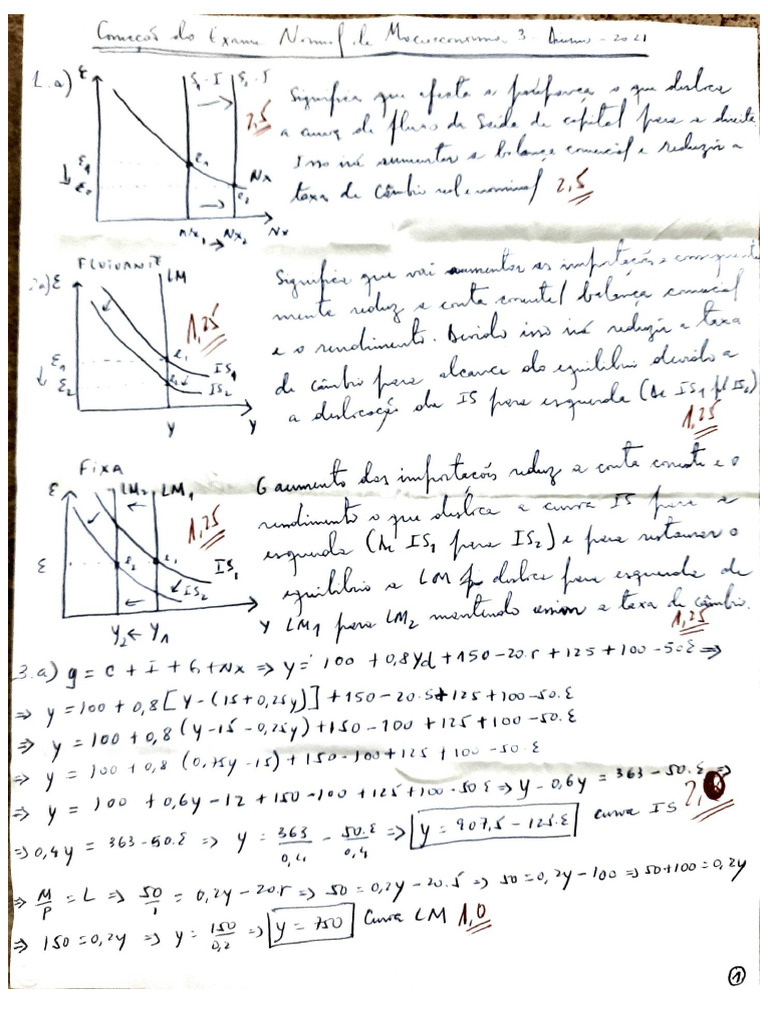 Correcção do Exame Normal de Macroeconomia 3. Diurno - 2021
1.a) ε S₁-I S₂-I
2,5
ε₁
ε₂
e₁
e₂ NX
NX₁ → NX₂ NX
Significa que afecta a poupança o que desloca
a curva de fluxo de saída de capital para a direita
Isso irá aumentar a balança comercial e reduzir a
taxa de câmbio real e nominal 2,5
2a) FLUTUANTE
ε LM
1,25
ε₁
ε₂
e₁
e₂
IS₁
IS₂
Y Y
Significa que vai aumentar as importações e consequente
mente reduz a conta corrente/ balança comercial
e o rendimento. Devido isso irá reduzir a taxa
de câmbio para alcance do equilíbrio devido a
a deslocação da IS para esquerda (de IS₁ p/ IS₂)
1,25
FIXA
ε LM₂ LM₁
1,25
ε e₂ e₁
IS₁
IS₂
Y₂ ← Y₁ Y
O aumento das importações reduz a conta corrente e o
rendimento o que desloca a curva IS para a
esquerda (de IS₁ para IS₂) e para restaurar o
equilíbrio a LM desloca para esquerda de
LM₁ para LM₂ mantendo assim a taxa de câmbio.
1,25
3.a) y = C + I + G + NX ⇒ y = 100 + 0,8Yd + 150 - 20.r + 125 + 100 - 50ε ⇒
⇒ y = 100 + 0,8[y - (15 + 0,25y)] + 150 - 20.5 + 125 + 100 - 50.ε
⇒ y = 100 + 0,8(y - 15 - 0,25y) + 150 - 100 + 125 + 100 - 50.ε
⇒ y = 100 + 0,8 (0,75y - 15) + 150 - 100 + 125 + 100 - 50.ε
⇒ y = 100 + 0,6y - 12 + 150 - 100 + 125 + 100 - 50ε ⇒ y - 0,6y = 363 - 50.ε ⇒
⇒ 0,4y = 363 - 50.ε ⇒ y = 363/0,4 - 50.ε/0,4 ⇒ y = 907,5 - 125.ε curva IS
⇒ M/P = L ⇒ 50/1 = 0,2y - 20.r ⇒ 50 = 0,2y - 20.5 ⇒ 50 = 0,2y - 100 ⇒ 50 + 100 = 0,2y
⇒ 150 = 0,2y ⇒ y = 150/0,2 ⇒ y = 750 Curva LM 1,0
1